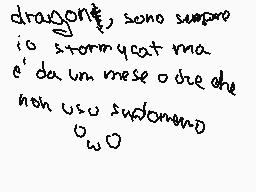 dragont, sono sempre
io stormycat ma
e' da um mese o due che
non uso sudomemo
OwO